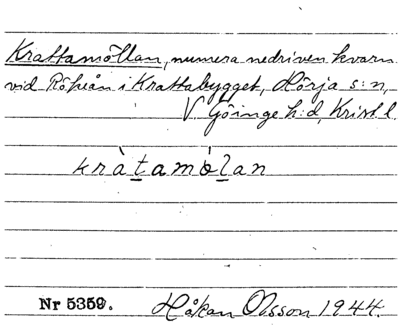 Krattamöllan, numera nedriven kvarn
vid Rökeån i Krattabygget, Hörja s:n,
V. Göinge h:d, Krist. l.
kràtamòlan
Nr 5359.
Håkan Olsson 1944.